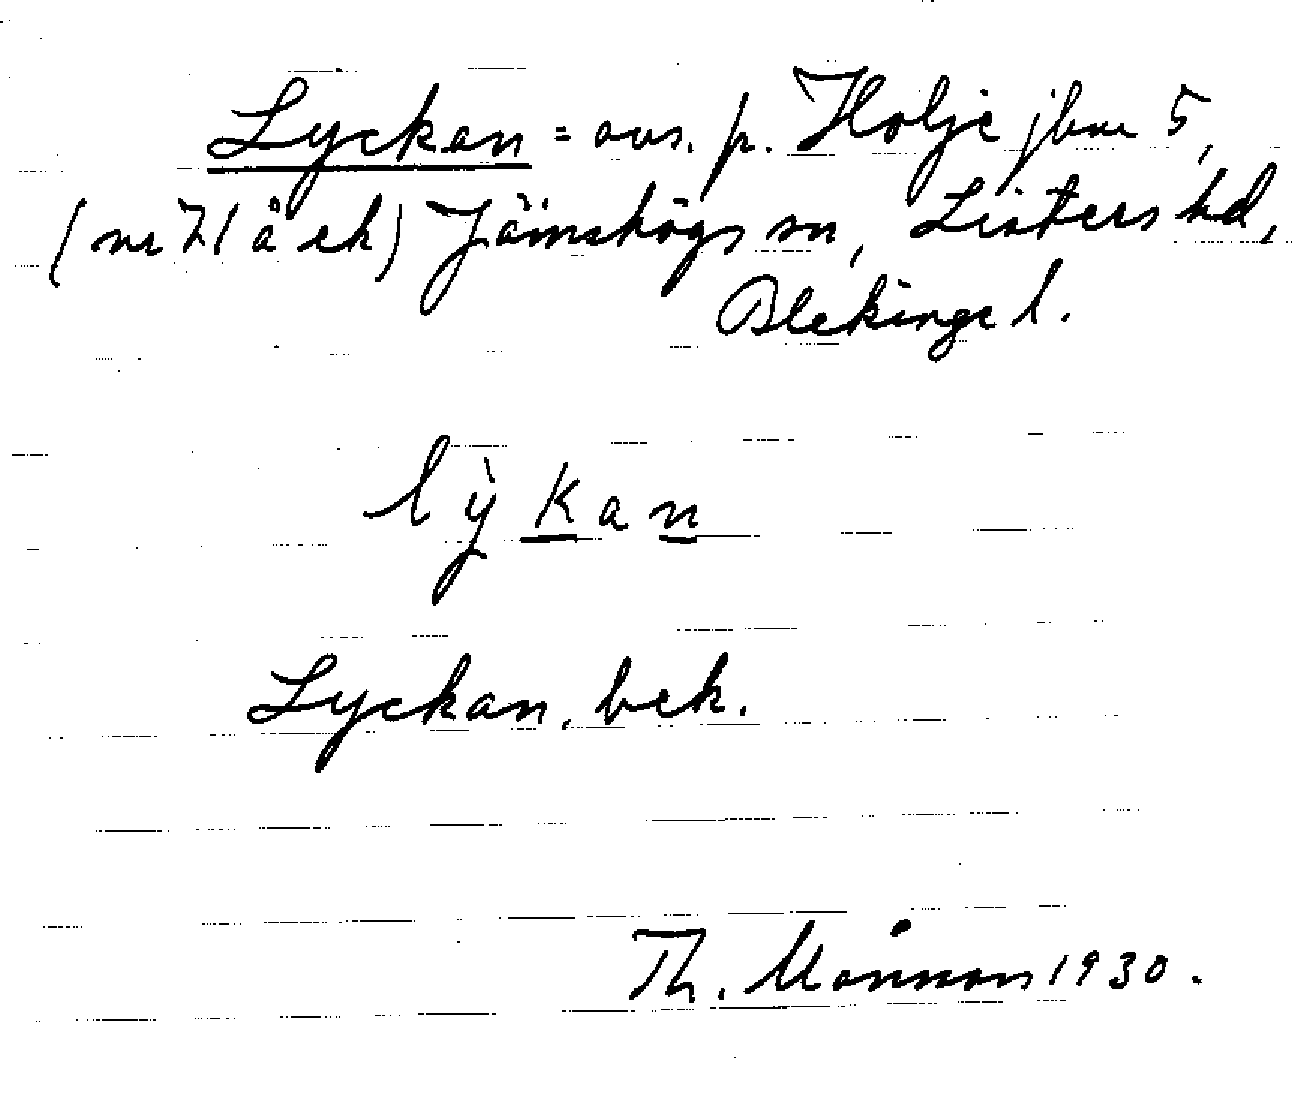 Lyckan = avs. p. Holje jbnr 5,
(nr 71 å ek) Jämshögs sn, Listers hd,
Blekinge l.
lỳkan
Lyckan, bek.
Th. Månsson 1930.